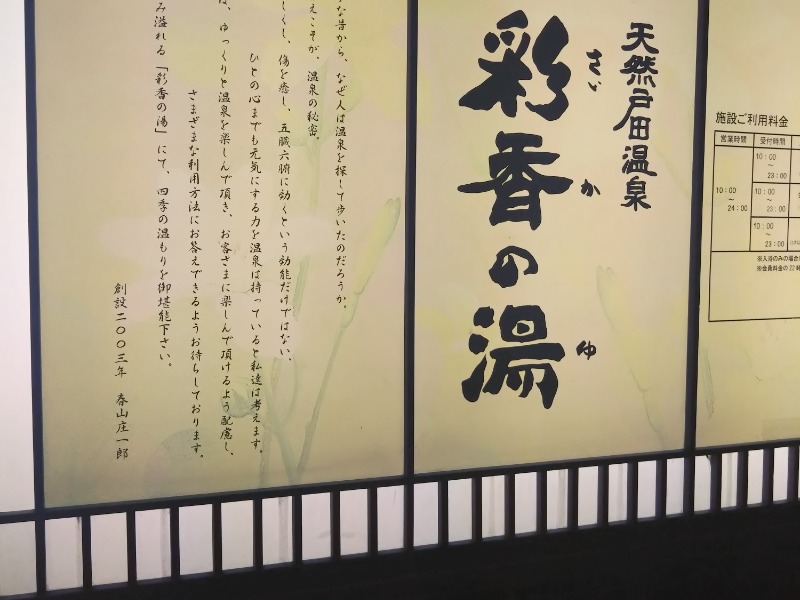 天然戸田温泉
彩香の湯
さい
か
ゆ
な昔から、なぜ人は温泉を探して歩いたのだろうか。
えこそが、温泉の秘密。
しくし、傷を癒し、五臓六腑に効くという効能だけではない、
ひとの心までも元気にする力を温泉は持っていると私達は考えます。
、ゆっくりと温泉を楽しんで頂き、お客さまに楽しんで頂けるよう配慮し、
さまざまな利用方法にお答えできるようお待ちしております。
み溢れる「彩香の湯」にて、四季の温もりを御堪能下さい。
創設二〇〇三年 春山庄一郎
施設ご利用料金
営業時間 受付時間
10:00
〜
24:00
10:00
〜
23:00
10:00
〜
23:00
10:00
〜
23:00
※入浴のみの場合
※会員料金の22時